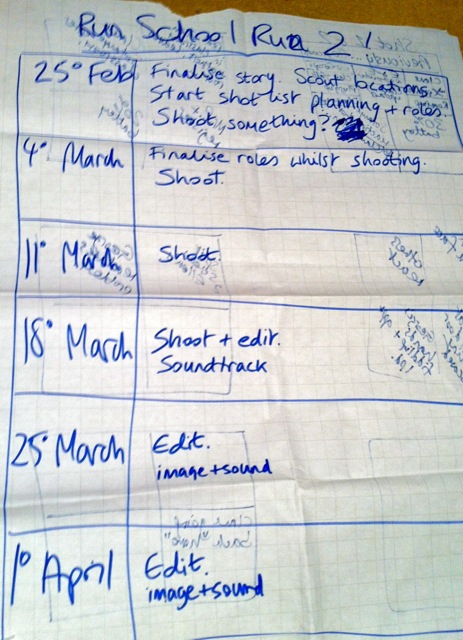 Run School Run 2!
25° Feb
Finalise story. Scout locations.
Start shot list planning + roles.
Shoot something?
4° March
Finalise roles whilst shooting.
Shoot.
11° March
Shoot.
18° March
Shoot + edit.
Soundtrack
25° March
Edit.
image+sound
1° April
Edit.
image+sound